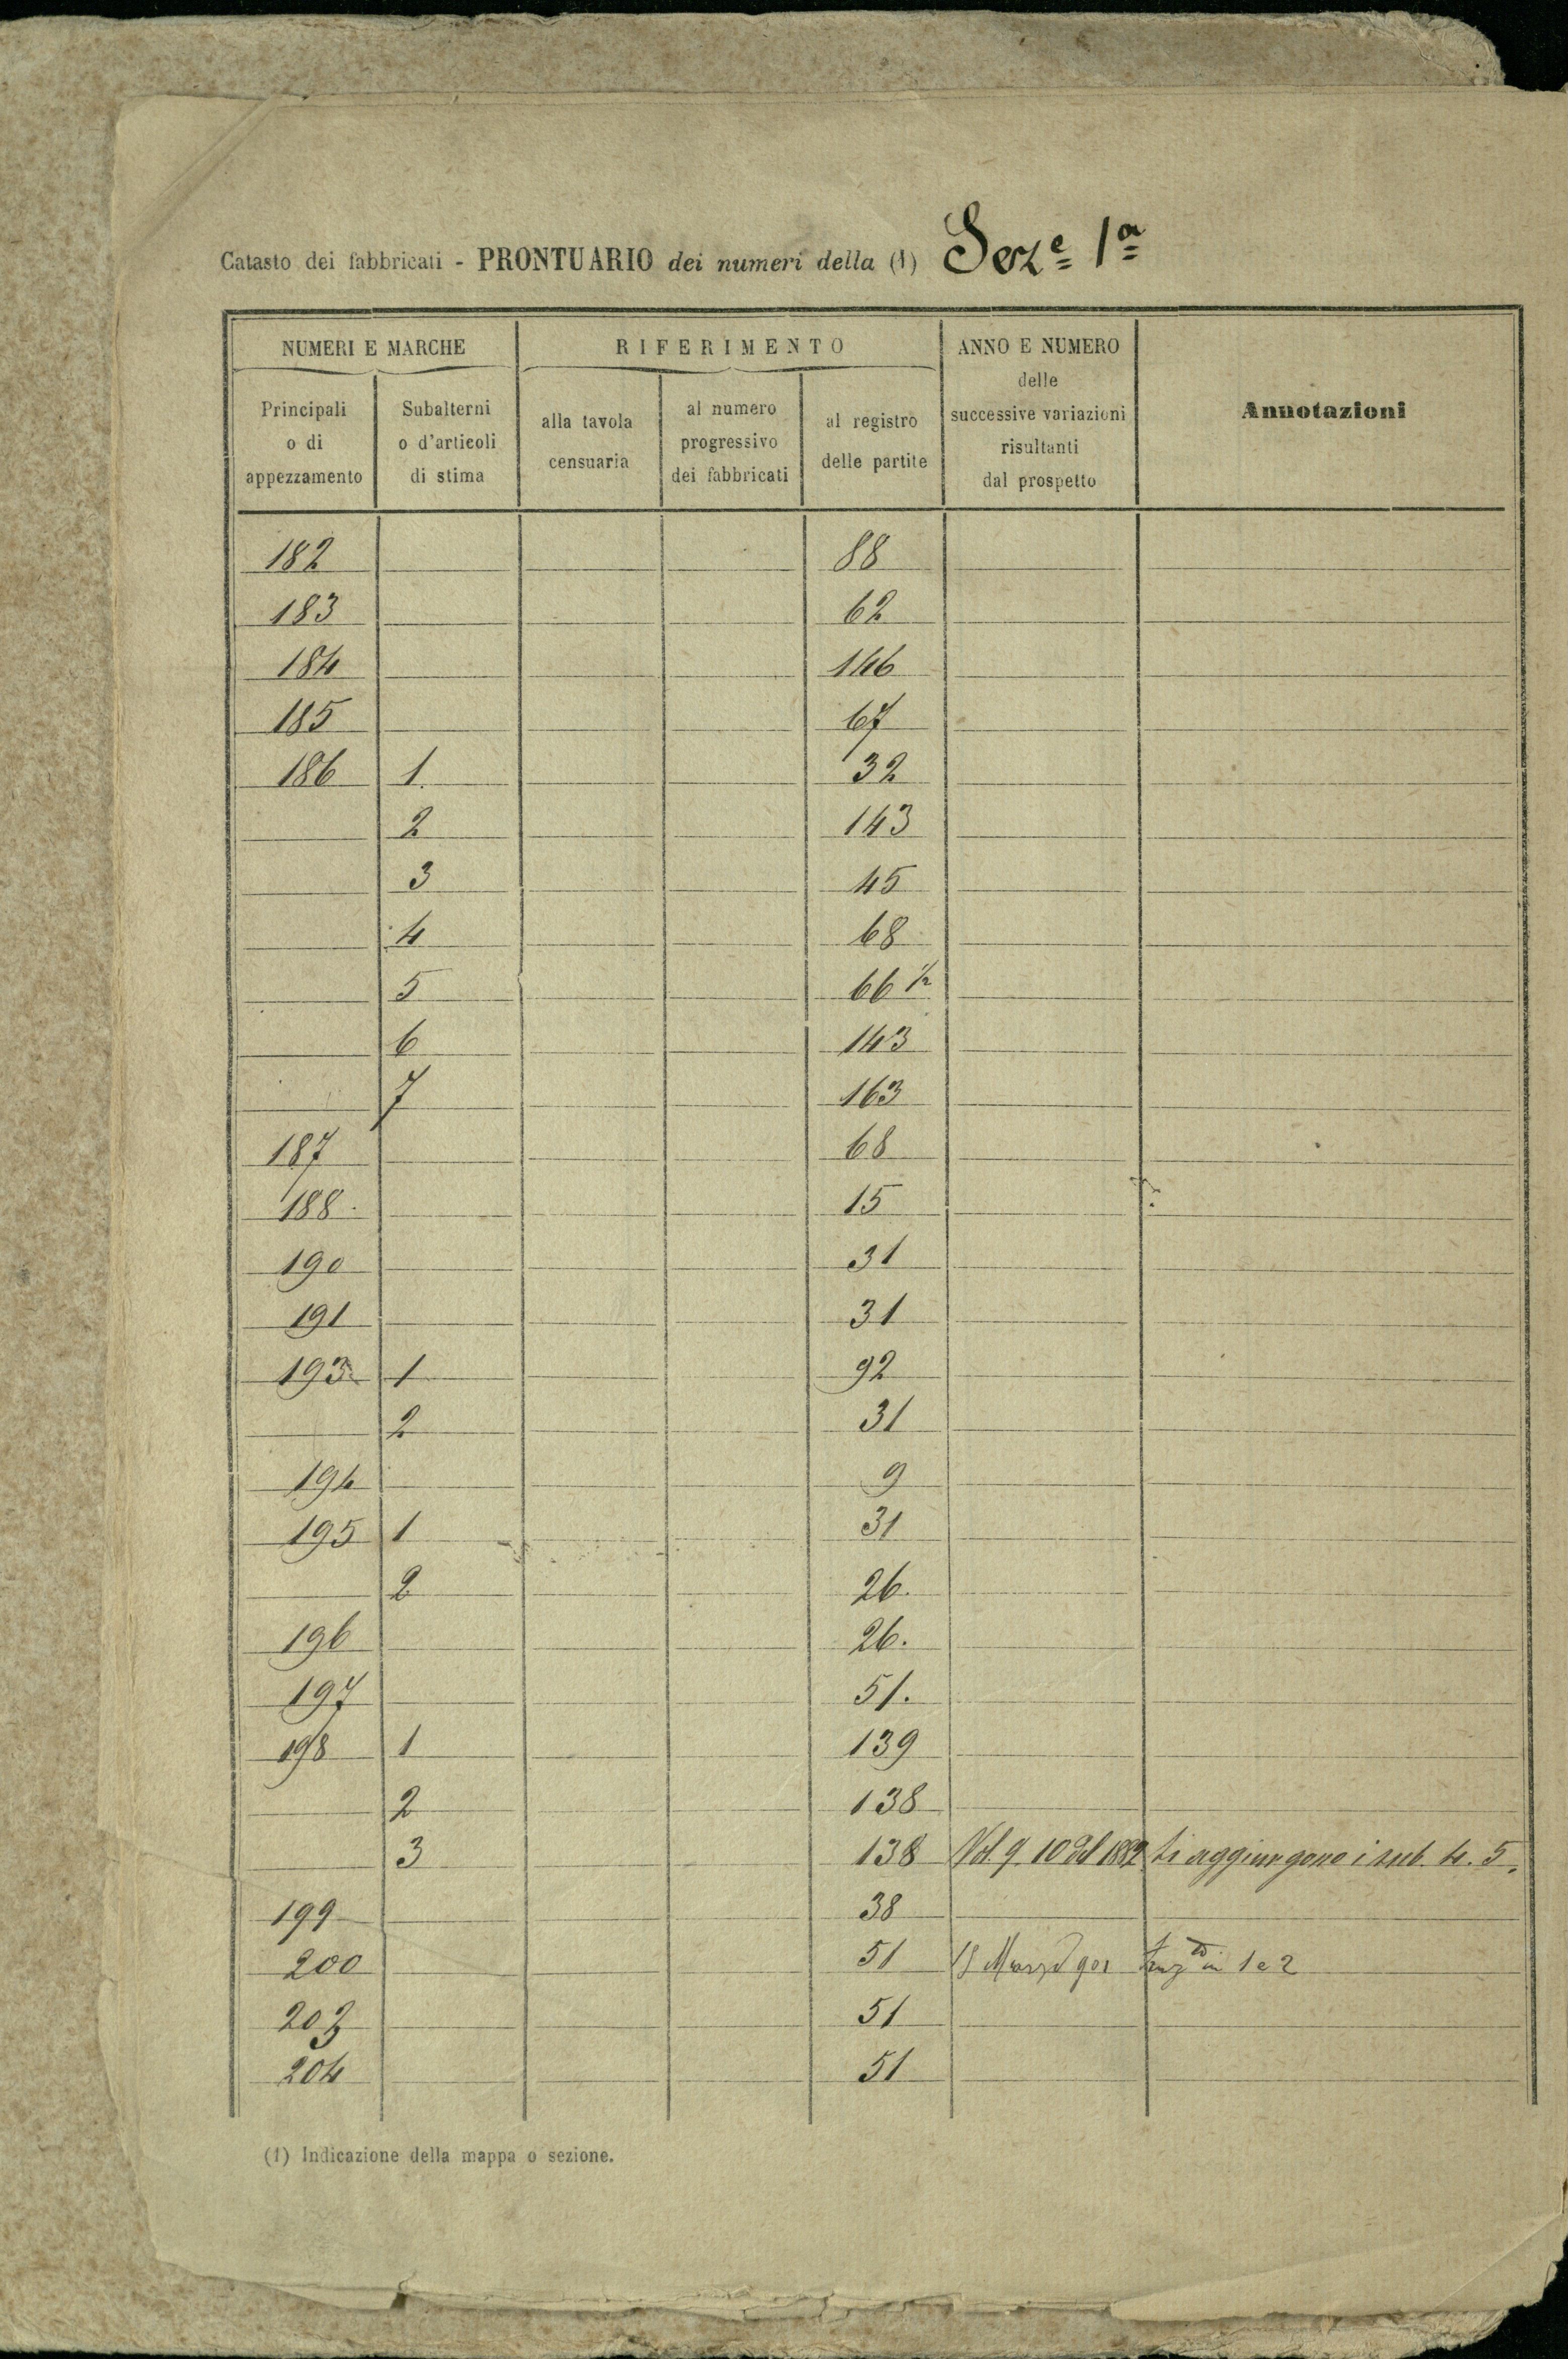 Catasto dei fabbricati - PRONTUARIO dei numeri della (1) Sez.e 1a
NUMERI E MARCHE
Principali o di appezzamento
Subalterni o d'articoli di stima
RIFERIMENTO
alla tavola censuaria
al numero progressivo dei fabbricati
al registro delle partite
ANNO E NUMERO delle successive variazioni risultanti dal prospetto
Annotazioni
182 88
183 62
184 146
185 67
186 1. 32
2 143
3 45
4 68
5 66 1/2
6 143
7 163
187 68
188. 15
190 31
191 31
193 1 92
2 31
194 9
195 1 31
2 26.
196 26.
197 51.
198 1 139
2 138
3 138 Vol. 9. 10 del 1882 Si aggiungono i sub. 4. 5.
199 38
200 51 Marzo 901 in 1 e 2
203 51
204 51
(1) Indicazione della mappa o sezione.